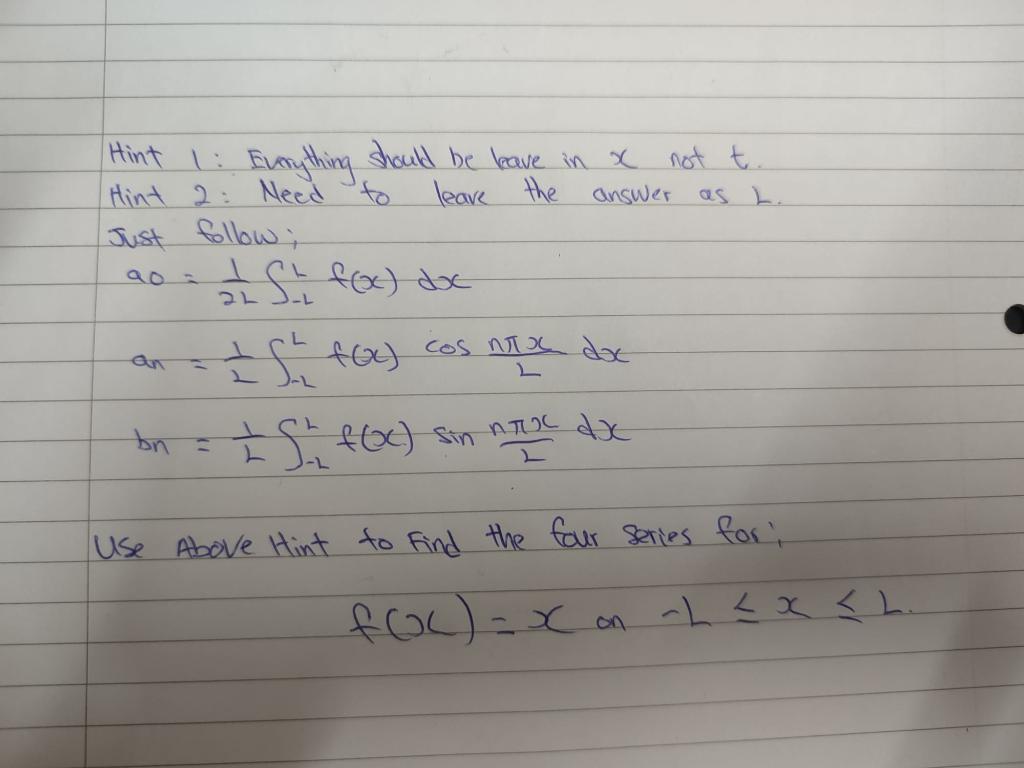 Hint 1: Everything should be leave in x not t.
Hint 2: Need to leave the answer as L.
Just follow;
a0 = 1/2L ∫_-L^L f(x) dx
an = 1/L ∫_-L^L f(x) cos nπx/L dx
bn = 1/L ∫_-L^L f(x) sin nπx/L dx
Use Above Hint to Find the four series for;
f(x) = x on -L ≤ x ≤ L.